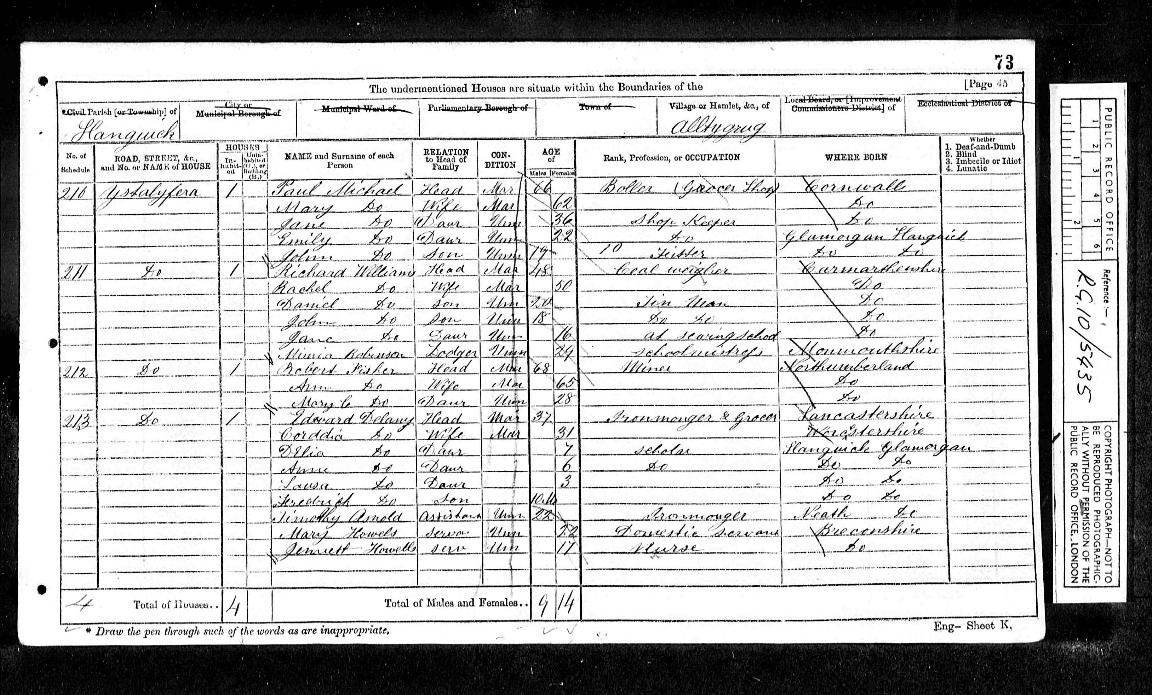 73
The undermentioned Houses are situate within the Boundaries of the [Page 45
Civil Parish [or Township] of City or Municipal Borough of Municipal Ward of Parliamentary Borough of Town of Village or Hamlet, &c., of Local Board, or [Improvement Commissioners District] of Ecclesiastical District of
Llanguick Alltygrug
No. of Schedule ROAD, STREET, &c., and No. or NAME of HOUSE HOUSES Inhabited Uninhabited (U.), or Building (B.) NAME and Surname of each Person RELATION to Head of Family CONDITION AGE of Males Females Rank, Profession, or OCCUPATION WHERE BORN Whether 1. Deaf-and-Dumb 2. Blind 3. Imbecile or Idiot 4. Lunatic
210 Ystalyfera 1 Paul Michael Head Mar 66 (Grocer Shop) Cornwall
Mary Do Wife Mar 62 Do
Jane Do Daur Unm 36 Shop Keeper Do
Emily Do Daur Unm 22 Do Glamorgan Llanguick
John Do Son Unm 19 Do Do
211 Do 1 Richard Williams Head Mar 48 Coal weigher Carmarthenshire
Rachel Do Wife Mar 50 Do
Daniel Do Son Unm 20 Tin Man Do
John Do Son Unm 18 Do Do Do
Jane Do Daur Unm 16 at sewing school Do
Robinson Lodger Unm 29 schoolmistress Monmouthshire
212 Do 1 Robert Fisher Head Mar 68 Miner Northumberland
Ann Do Wife Mar 65 Do
Mary C Do Daur Unm 28 Do
213 Do 1 Edward Delany Head Mar 37 Ironmonger & Grocer Lancastershire
Corddia Do Wife Mar 31 Worcestershire
Do Daur 7 scholar Llanguick Glamorgan
Annie Do Daur 6 Do Do Do
Louisa Do Daur 3 Do Do
Fredrick Do Son Do Do
Timothy Arnold Assistant Unm 22 Ironmonger Neath Do
Mary Howels servant Unm 22 Domestic Servant Breconshire
Howells serv Unm 17 Nurse Do
4 Total of Houses.. 4 Total of Males and Females.. 9 14
* Draw the pen through such of the words as are inappropriate. Eng- Sheet K.
PUBLIC RECORD OFFICE
1 2 3 4 5 6
1 2
Reference :-
R.G. 10/5435
COPYRIGHT PHOTOGRAPH—NOT TO BE REPRODUCED PHOTOGRAPHICALLY WITHOUT PERMISSION OF THE PUBLIC RECORD OFFICE, LONDON